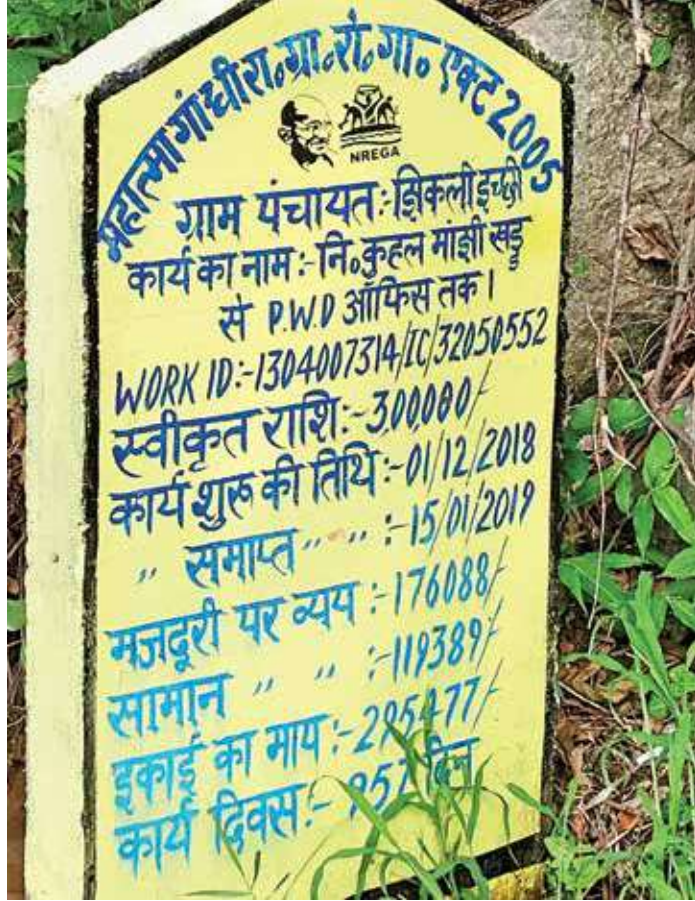 महात्मा गांधी रा॰ग्रा॰रो॰गा॰ एक्ट 2005
NREGA
ग्राम पंचायत:- झिकली इच्छी
कार्य का नाम:- नि॰ कुहल मांझी खड्ड
से P.W.D ऑफिस तक।
WORK ID:-1304007314/IC/32050552
स्वीकृत राशि:-3,00,000/-
कार्य शुरू की तिथि:-01/12/2018
" समाप्त " " :-15/01/2019
मजदूरी पर व्यय:-176088/-
सामान " " :-119389/-
इकाई का माय:-295477/-
कार्य दिवस:- दिन